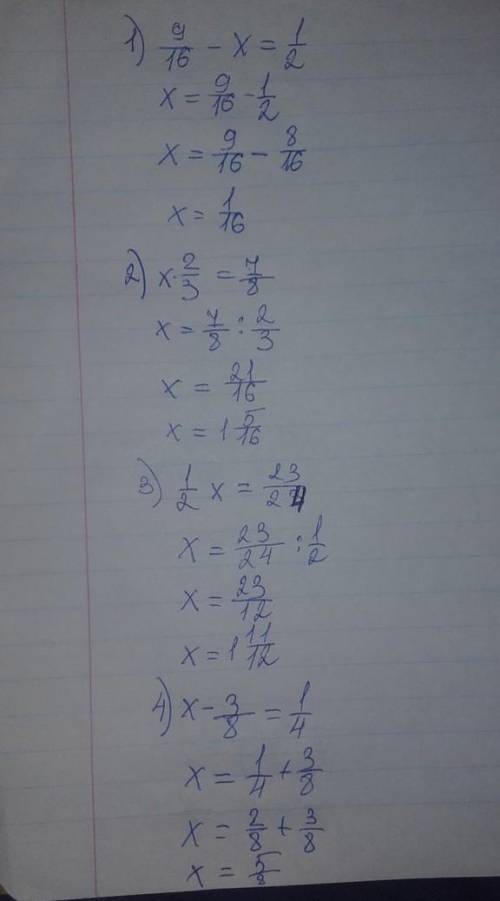 1) 9/16 - x = 1/2
x = 9/16 - 1/2
x = 9/16 - 8/16
x = 1/16
2) x · 2/3 = 7/8
x = 7/8 : 2/3
x = 21/16
x = 1 5/16
3) 1/2 x = 23/24
x = 23/24 : 1/2
x = 23/12
x = 1 11/12
4) x - 3/8 = 1/4
x = 1/4 + 3/8
x = 2/8 + 3/8
x = 5/8